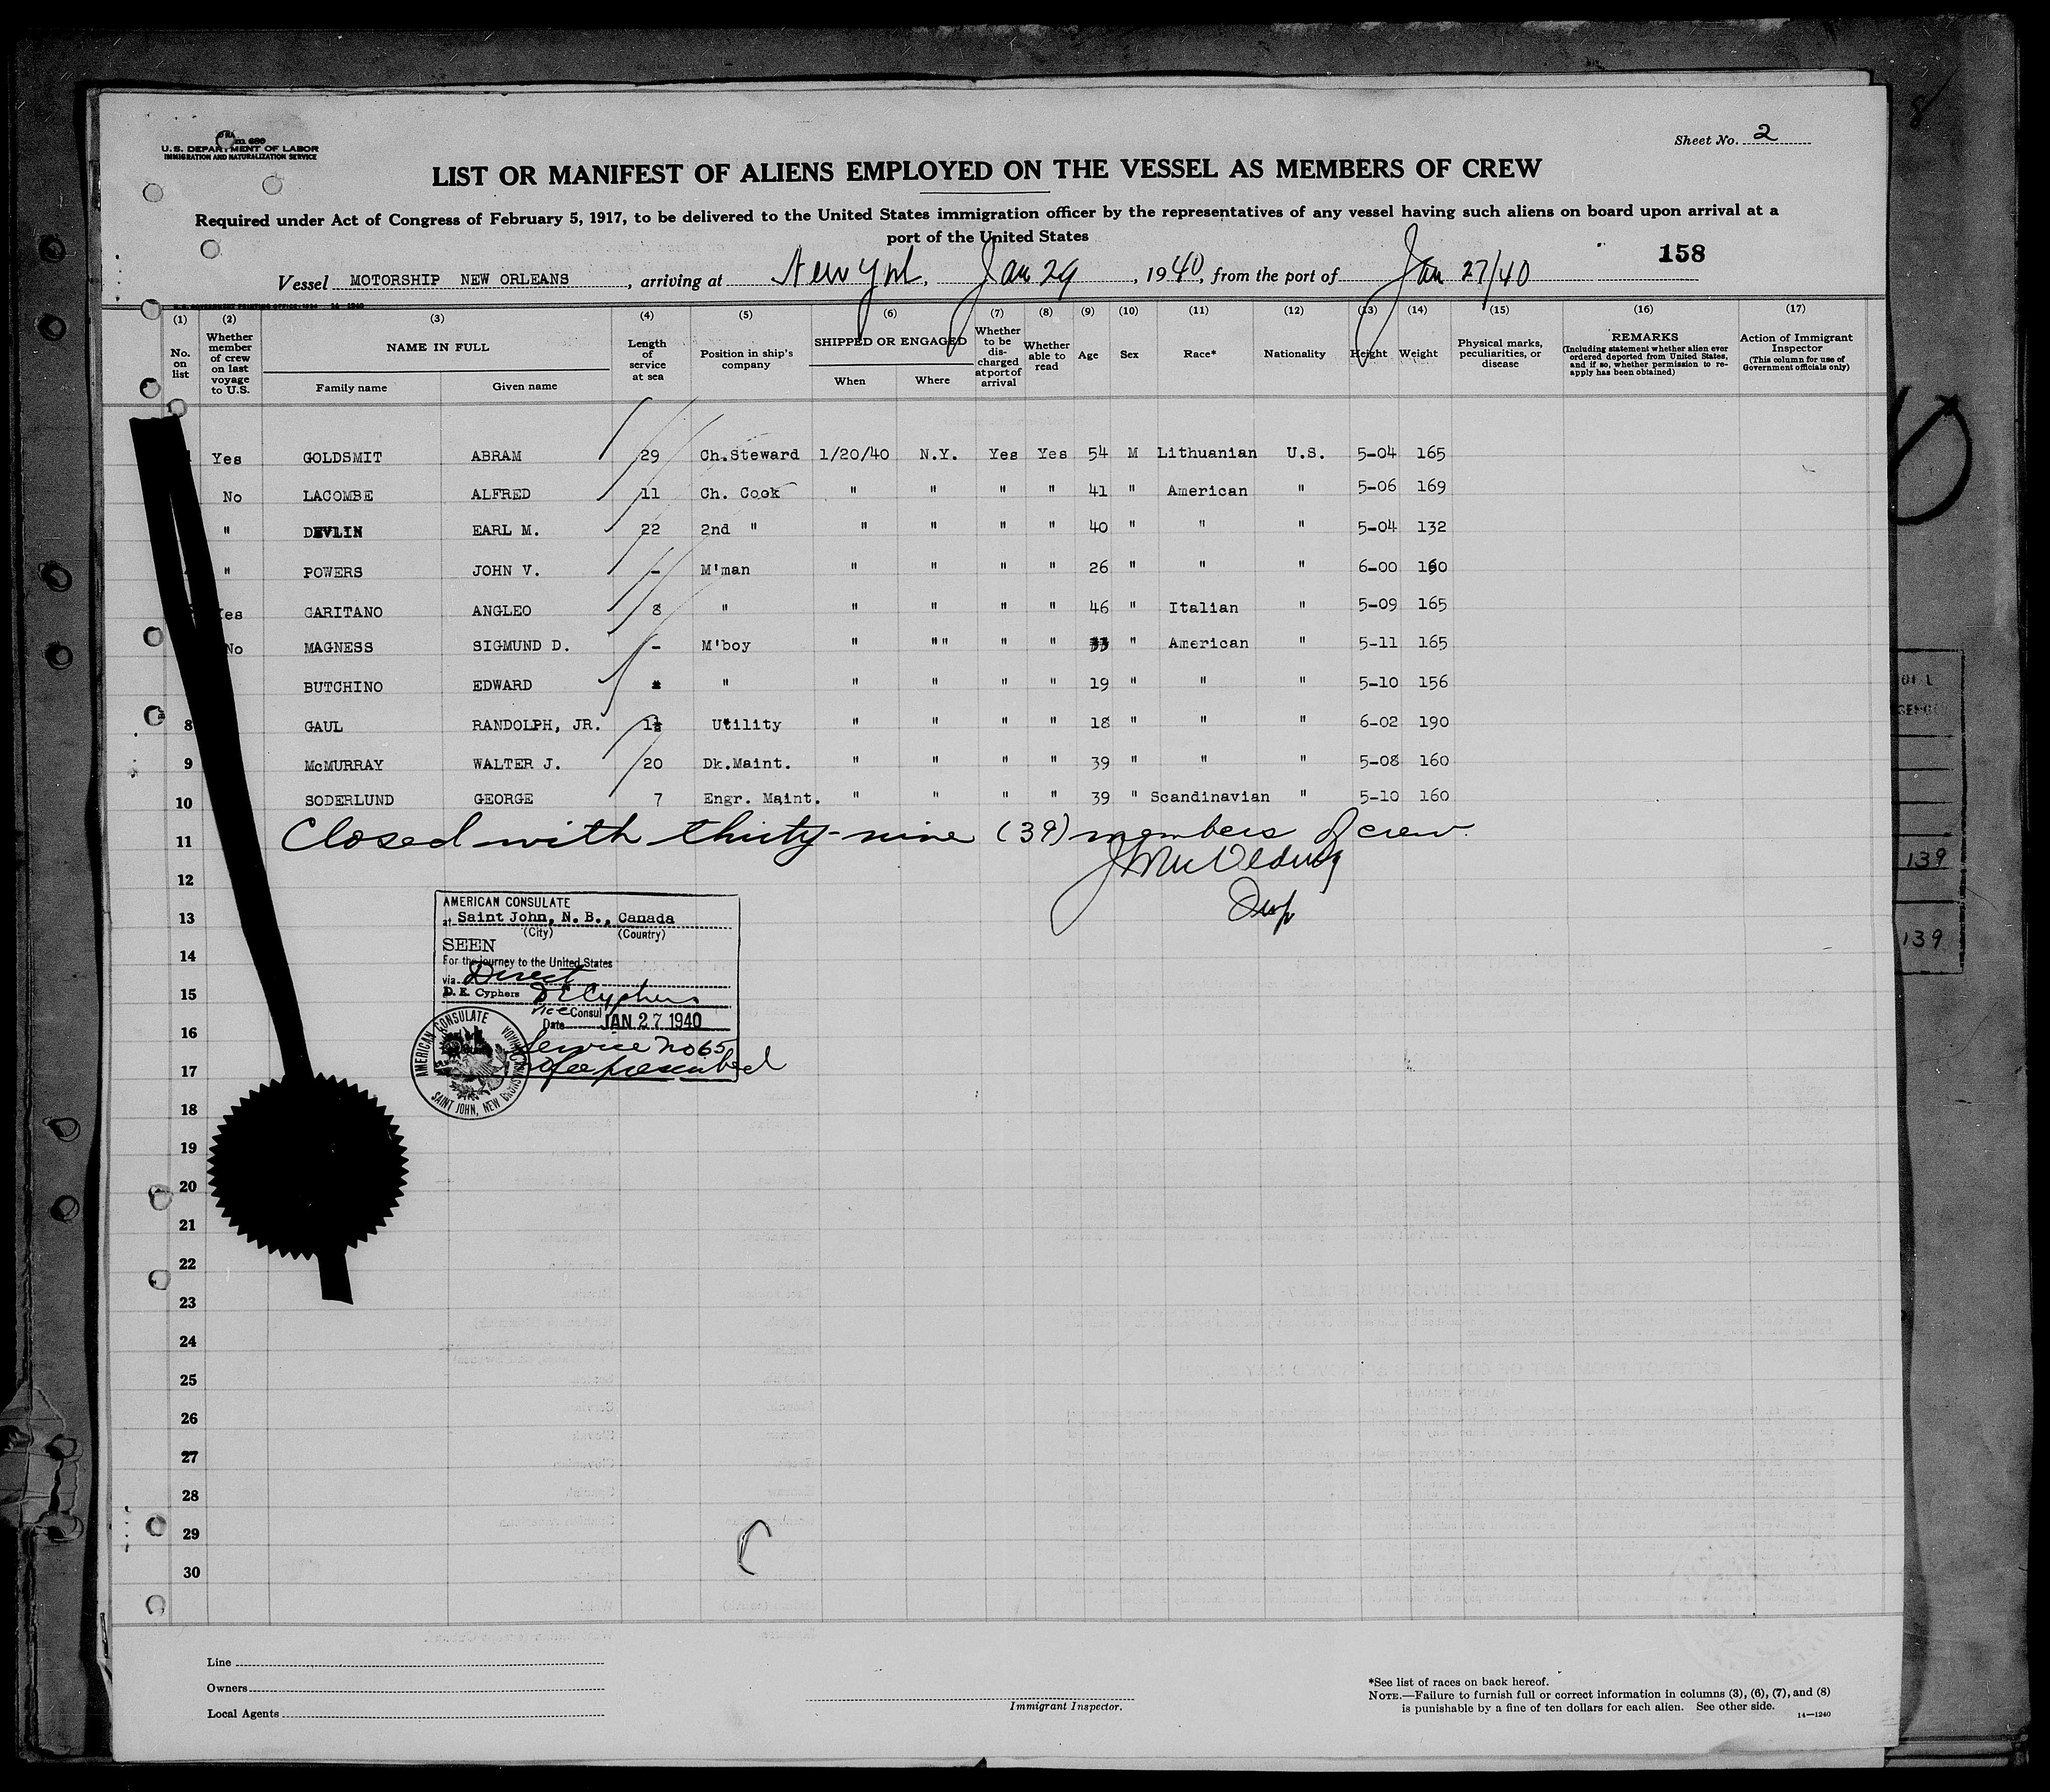 Form 680
U.S. DEPARTMENT OF LABOR
IMMIGRATION AND NATURALIZATION SERVICE
Sheet No. 2
LIST OR MANIFEST OF ALIENS EMPLOYED ON THE VESSEL AS MEMBERS OF CREW
Required under Act of Congress of February 5, 1917, to be delivered to the United States immigration officer by the representatives of any vessel having such aliens on board upon arrival at a
port of the United States
158
Vessel MOTORSHIP NEW ORLEANS, arriving at New York, Jan 29, 1940, from the port of Jan 27/40
(1) (2) (3) (4) (5) (6) (7) (8) (9) (10) (11) (12) (13) (14) (15) (16) (17)
No. on list
Whether member of crew on last voyage to U.S.
NAME IN FULL
Family name Given name
Length of service at sea
Position in ship's company
SHIPPED OR ENGAGED
When Where
Whether to be discharged at port of arrival
Whether able to read
Age
Sex
Race*
Nationality
Height
Weight
Physical marks, peculiarities, or disease
REMARKS
(Including statement whether alien ever ordered deported from United States, and if so, whether permission to re-apply has been obtained)
Action of Immigrant Inspector
(This column for use of Government officials only)
Yes GOLDSMIT ABRAM 29 Ch.Steward 1/20/40 N.Y. Yes Yes 54 M Lithuanian U.S. 5-04 165
No LACOMBE ALFRED 11 Ch. Cook " " " " 41 " American " 5-06 169
" DEVLIN EARL M. 22 2nd " " " " " 40 " " " 5-04 132
" POWERS JOHN V. - M'man " " " " 26 " " " 6-00 160
Yes CARITANO ANGLEO 8 " " " " " 46 " Italian " 5-09 165
No MAGNESS SIGMUND D. - M'boy " "" " " " American " 5-11 165
BUTCHINO EDWARD " " " " " 19 " " " 5-10 156
8 GAUL RANDOLPH, JR. 1½ Utility " " " " 18 " " " 6-02 190
9 McMURRAY WALTER J. 20 Dk.Maint. " " " " 39 " " " 5-08 160
10 SODERLUND GEORGE 7 Engr. Maint. " " " " 39 " Scandinavian " 5-10 160
11 Closed with thirty-nine (39) members of crew.
12
13
14
15
16
17
18
19
20
21
22
23
24
25
26
27
28
29
30
AMERICAN CONSULATE
at Saint John, N. B., Canada
(City) (Country)
SEEN
For the journey to the United States
via Direct
D. E. Cyphers D E Cyphers
Vice Consul
Date JAN 27 1940
Service No 65
No fee prescribed
AMERICAN CONSULATE
SAINT JOHN, NEW BRUNSWICK, CANADA
139
139
Line
Owners
Local Agents
Immigrant Inspector.
*See list of races on back hereof.
NOTE.—Failure to furnish full or correct information in columns (3), (6), (7), and (8)
is punishable by a fine of ten dollars for each alien. See other side.
14—1240